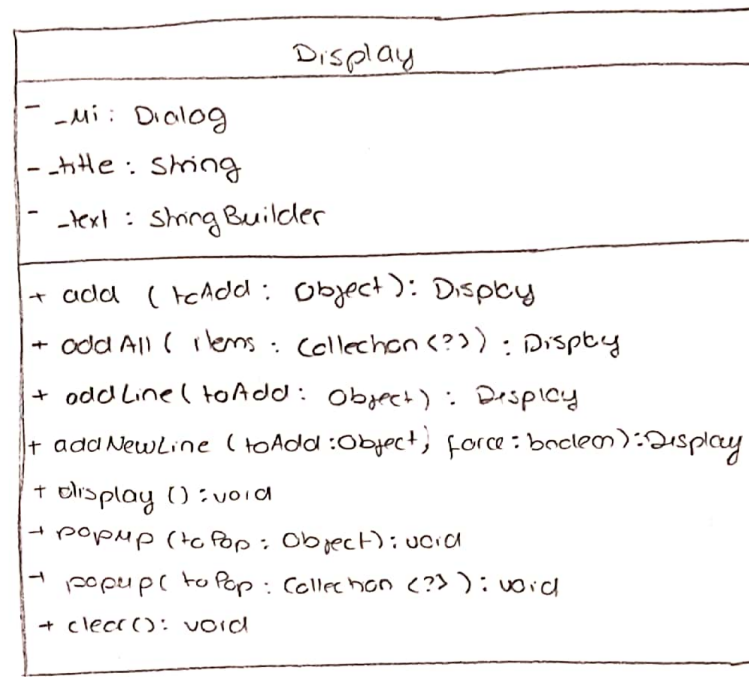 Display
- _ui: Dialog
- _title: String
- _text: StringBuilder
+ add (toAdd: Object): Display
+ addAll( items: Collection<?>): Display
+ addLine( toAdd: Object): Display
+ addNewLine (toAdd:Object, force: boolean):Display
+ display (): void
+ popup (toPop: Object): void
+ popup( toPop: Collection <?>): void
+ clear(): void